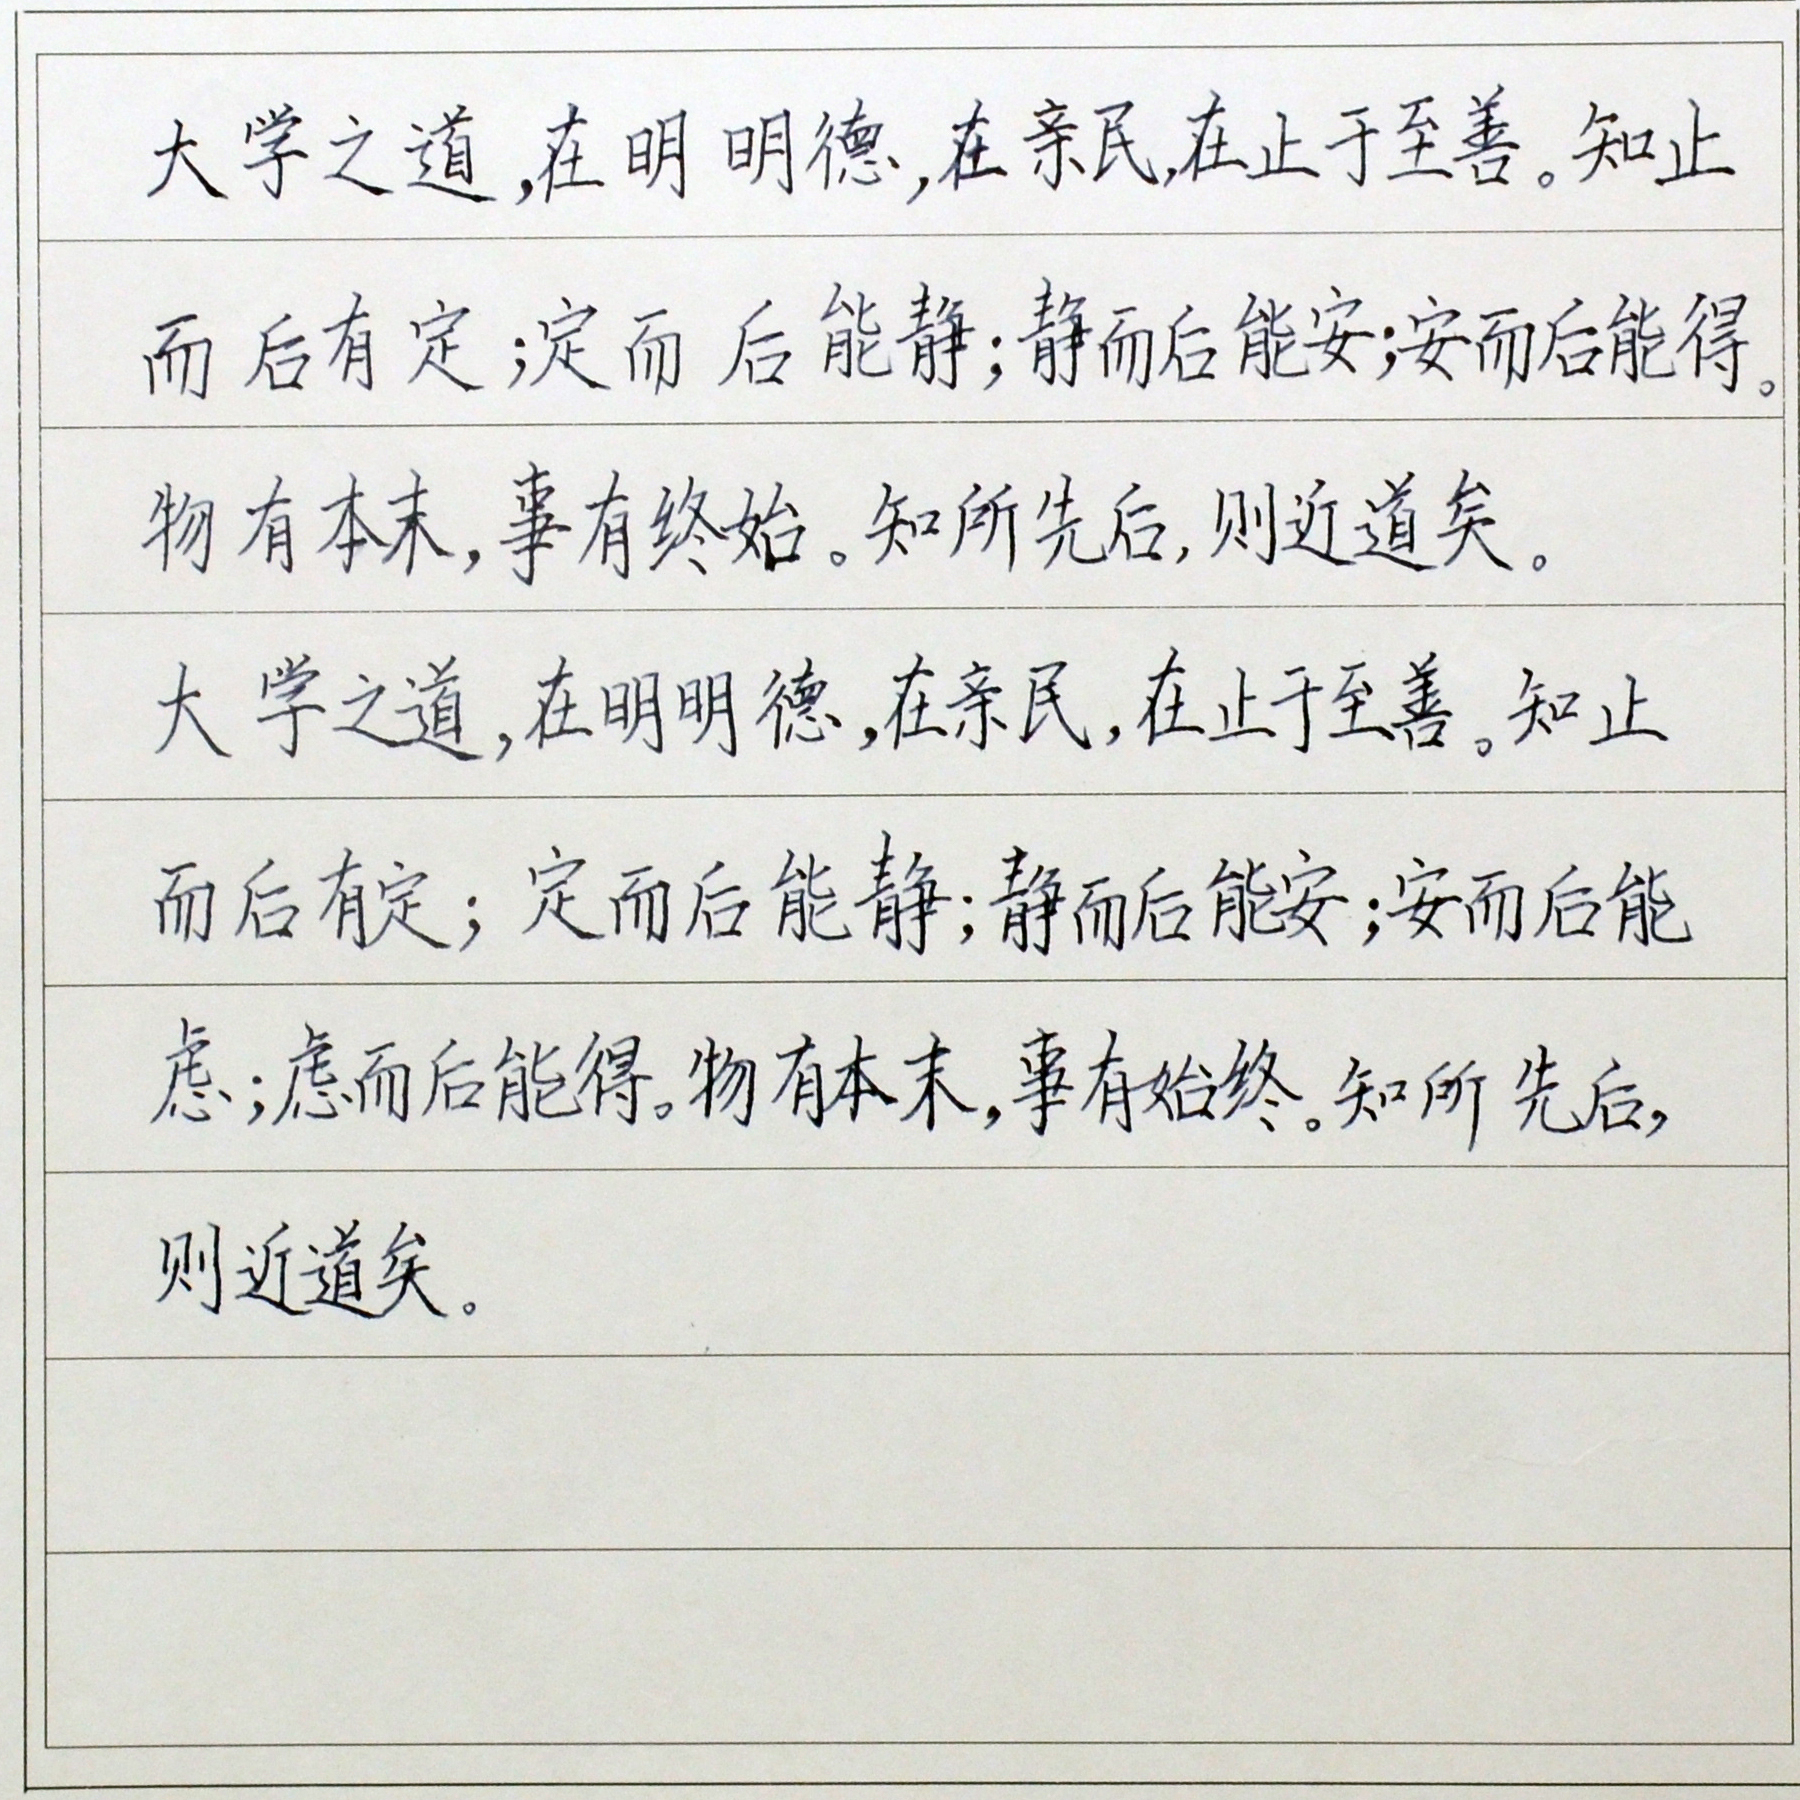 大学之道,在明明德,在亲民,在止于至善。知止
而后有定;定而后能静;静而后能安;安而后能得。
物有本末,事有终始。知所先后,则近道矣。
大学之道,在明明德,在亲民,在止于至善。知止
而后有定;定而后能静;静而后能安;安而后能
虑;虑而后能得。物有本末,事有始终。知所先后,
则近道矣。